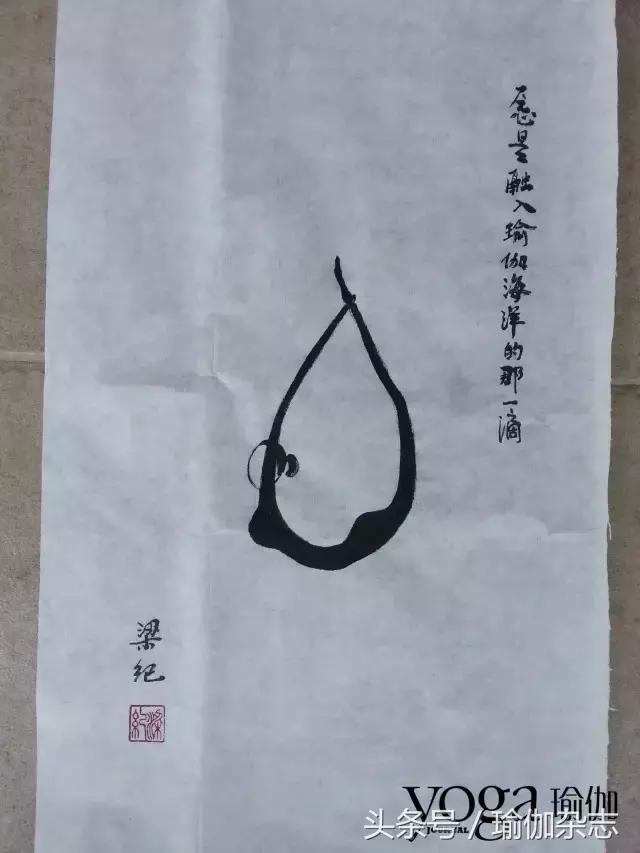 愿是融入瑜伽海洋的那一滴
梁纪
梁纪
yoga 瑜伽
JOURNAL
头条号／瑜伽杂志